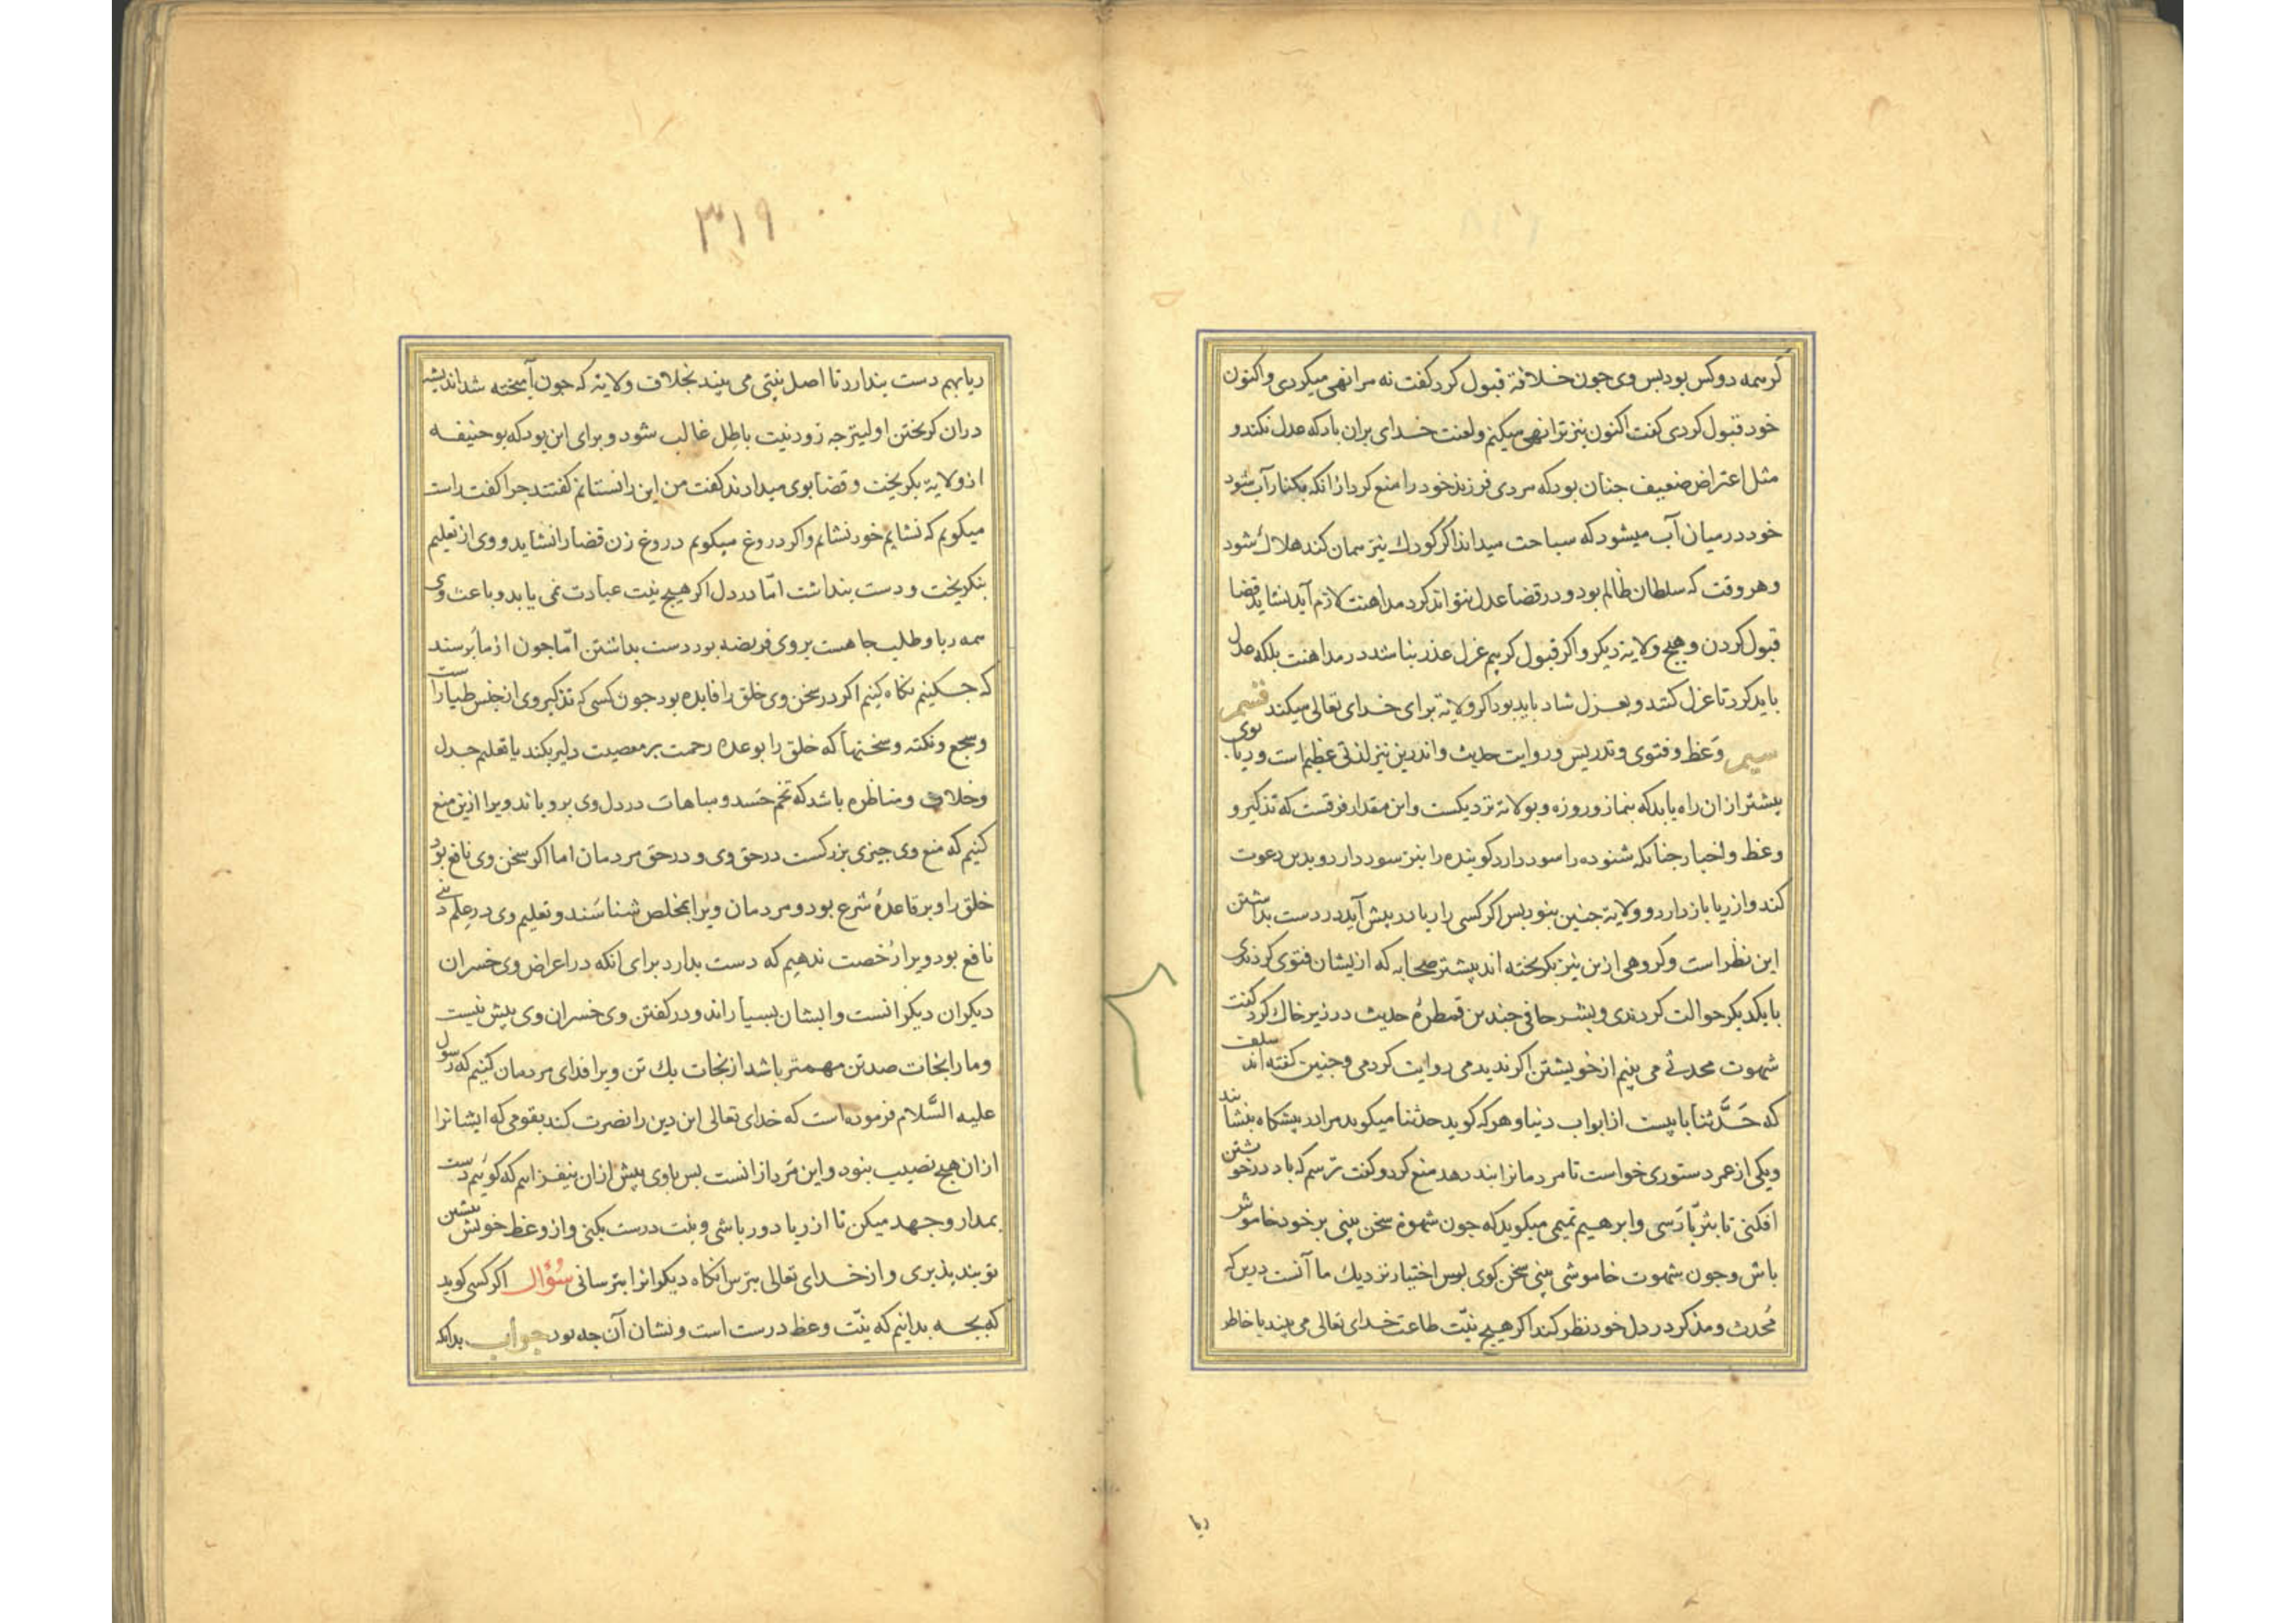 گرهمه دوکس بود بس وی جون خلافة قبول کرد کفت نه مرا نهی میکردی واکنون
خود قبول کردی کفت اکنون نیز ترا نهی میکنم ولعنت خدای بران باد که عدل نکند و
مثل اعتراض ضعیف جنان بود که مردی فرزند خود را منع کرد ازانکه بکنار آب شود
خود در میان آب میشود که سباحت میداند اکر کودك نیز همان کند هلاك شود
وهروقت که سلطان ظالم بود و در قضا عدل نتواند کرد مداهنت لازم آید نشاید قضا
قبول کردن وهیج ولایة دیکر واکر قبول کردیم عزل عذر نباشد در مداهنت بلکه عدل
باید کرد تا عزل کنند و بعزل شاد باید بود اکر ولایة برای خدای تعالی میکند قسم
سیم وَعظ و فتوی وتدریس وروایت حدیث واندرین نیز لذتی عظیم است و ریا بوی
بیشتر ازان راه یابد که بنماز وروزه وبولایة نزدیکست واین مقدار فرقست که تذکیر و
وعظ واخبار جنانکه شنوده را سود دارد کوینده را نیز سود دارد و بدین دعوت
کند واز ریا باز دارد و ولایة جنین بنود بس اکر کسی را ریا در پیش آید در دست بداشتن
این نظر است وکروهی ازین نیز بکریخته اند بیشتر صحابه که از یشان فتوی کردندی
با یکدیکر حوالت کردندی وبشر حافی جندین قمطرهٔ حدیث در زیر خاك کرد کفت
شهوت محدثی می بینم از خویشتن اکر ندیدمی روایت کردمی وجنین کفته اند سلف
که حَدَّثنا بابیست از ابواب دنیا وهرکه کوید حدثنا میکوید مرا در پیشکاه بنشانید
ویکی از عمر دستوری خواست تا مردمانرا پند دهد منع کرد وکفت ترسم که باد در خویشتن
افکنی تا بثریّا رَسی وابرهیم تمیمی میکوید که جون شهوة سخن بینی بر خود خاموش
باش وجون شهوت خاموشی بینی سخن کوی بس اختیار نزدیك ما آنست درین که
مُحدث ومذکر در دل خود نظر کند اکر هیج نیّت طاعت خدای تعالی می بیند با خاطر
ریا
٣١٩
ریا بهم دست بندارد تا اصل نیتی می بیند بخلاف ولایة که جون آمیخته شد اندیشه
دران کریختن اولیتر جه زود نیت باطل غالب شود و برای این بود که بوحنیفه
از ولایة بکریخت وقضا بوی میدادند کفت من این را نشایم کفتند جرا کفت راست
میکویم که نشایم خود نشایم واکر دروغ میکویم دروغ زن قضا را نشاید ووی از تعلیم
بنکریخت ودست بنداشت امّا در دل اکر هیج نیت عبادت نمی یابد وباعث وی
همه ریا وطلب جاهست بروی فریضه بود دست بداشتن امّا جون از ما برسند
که جکنیم نکاه کنیم اکر در سخن وی خلق را فایده بود جون کسی که تذکیر وی از جنس طیاراست
وسجع ونکته وسخنهاکه خلق را بوعده رحمت بر معصیت دلیر بکند یا تعلیم جدل
وخلاف ومناظره باشد که تخم حسد ومباهات در دل وی برویاند ویرا ازین منع
کنیم که منع وی جیزی بزرکست در حق وی ودر حق مردمان اما اکر سخن وی نافع بود
خلق را وبر قاعدهٔ شرع بود ومردمان ویرا مخلص شناسَند وتعلیم وی در علم دینی
نافع بود ویرا رُخصت ندهیم که دست بدارد برای انکه در اعراض وی خسران
دیکران دیکرانست وایشان بسیارند ودر کفتن وی خسران وی بیش نیست
وما را نجات صد تن مهمتر باشد از نجات یك تن ویرا فدای مردمان کنیم که رسول
علیه السَّلام فرموده است که خدای تعالی این دین را نصرت کند بقومی که ایشانرا
ازان هیج نصیب بنود واین مرد ازانست بس با وی بیش ازان نیفزاییم که کوییم دست
بمدار وجهد میکن تا از ریا دور باشی ونیت درست بکنی واز وعظ خویش بیشین
تو پند پذیری واز خدای تعالی بترس انکاه دیکرانرا بترسانی سُؤال اکر کسی کوید
که بجه بدانیم که نیّت وعظ درست است ونشان آن جه بود جواب بدانکه